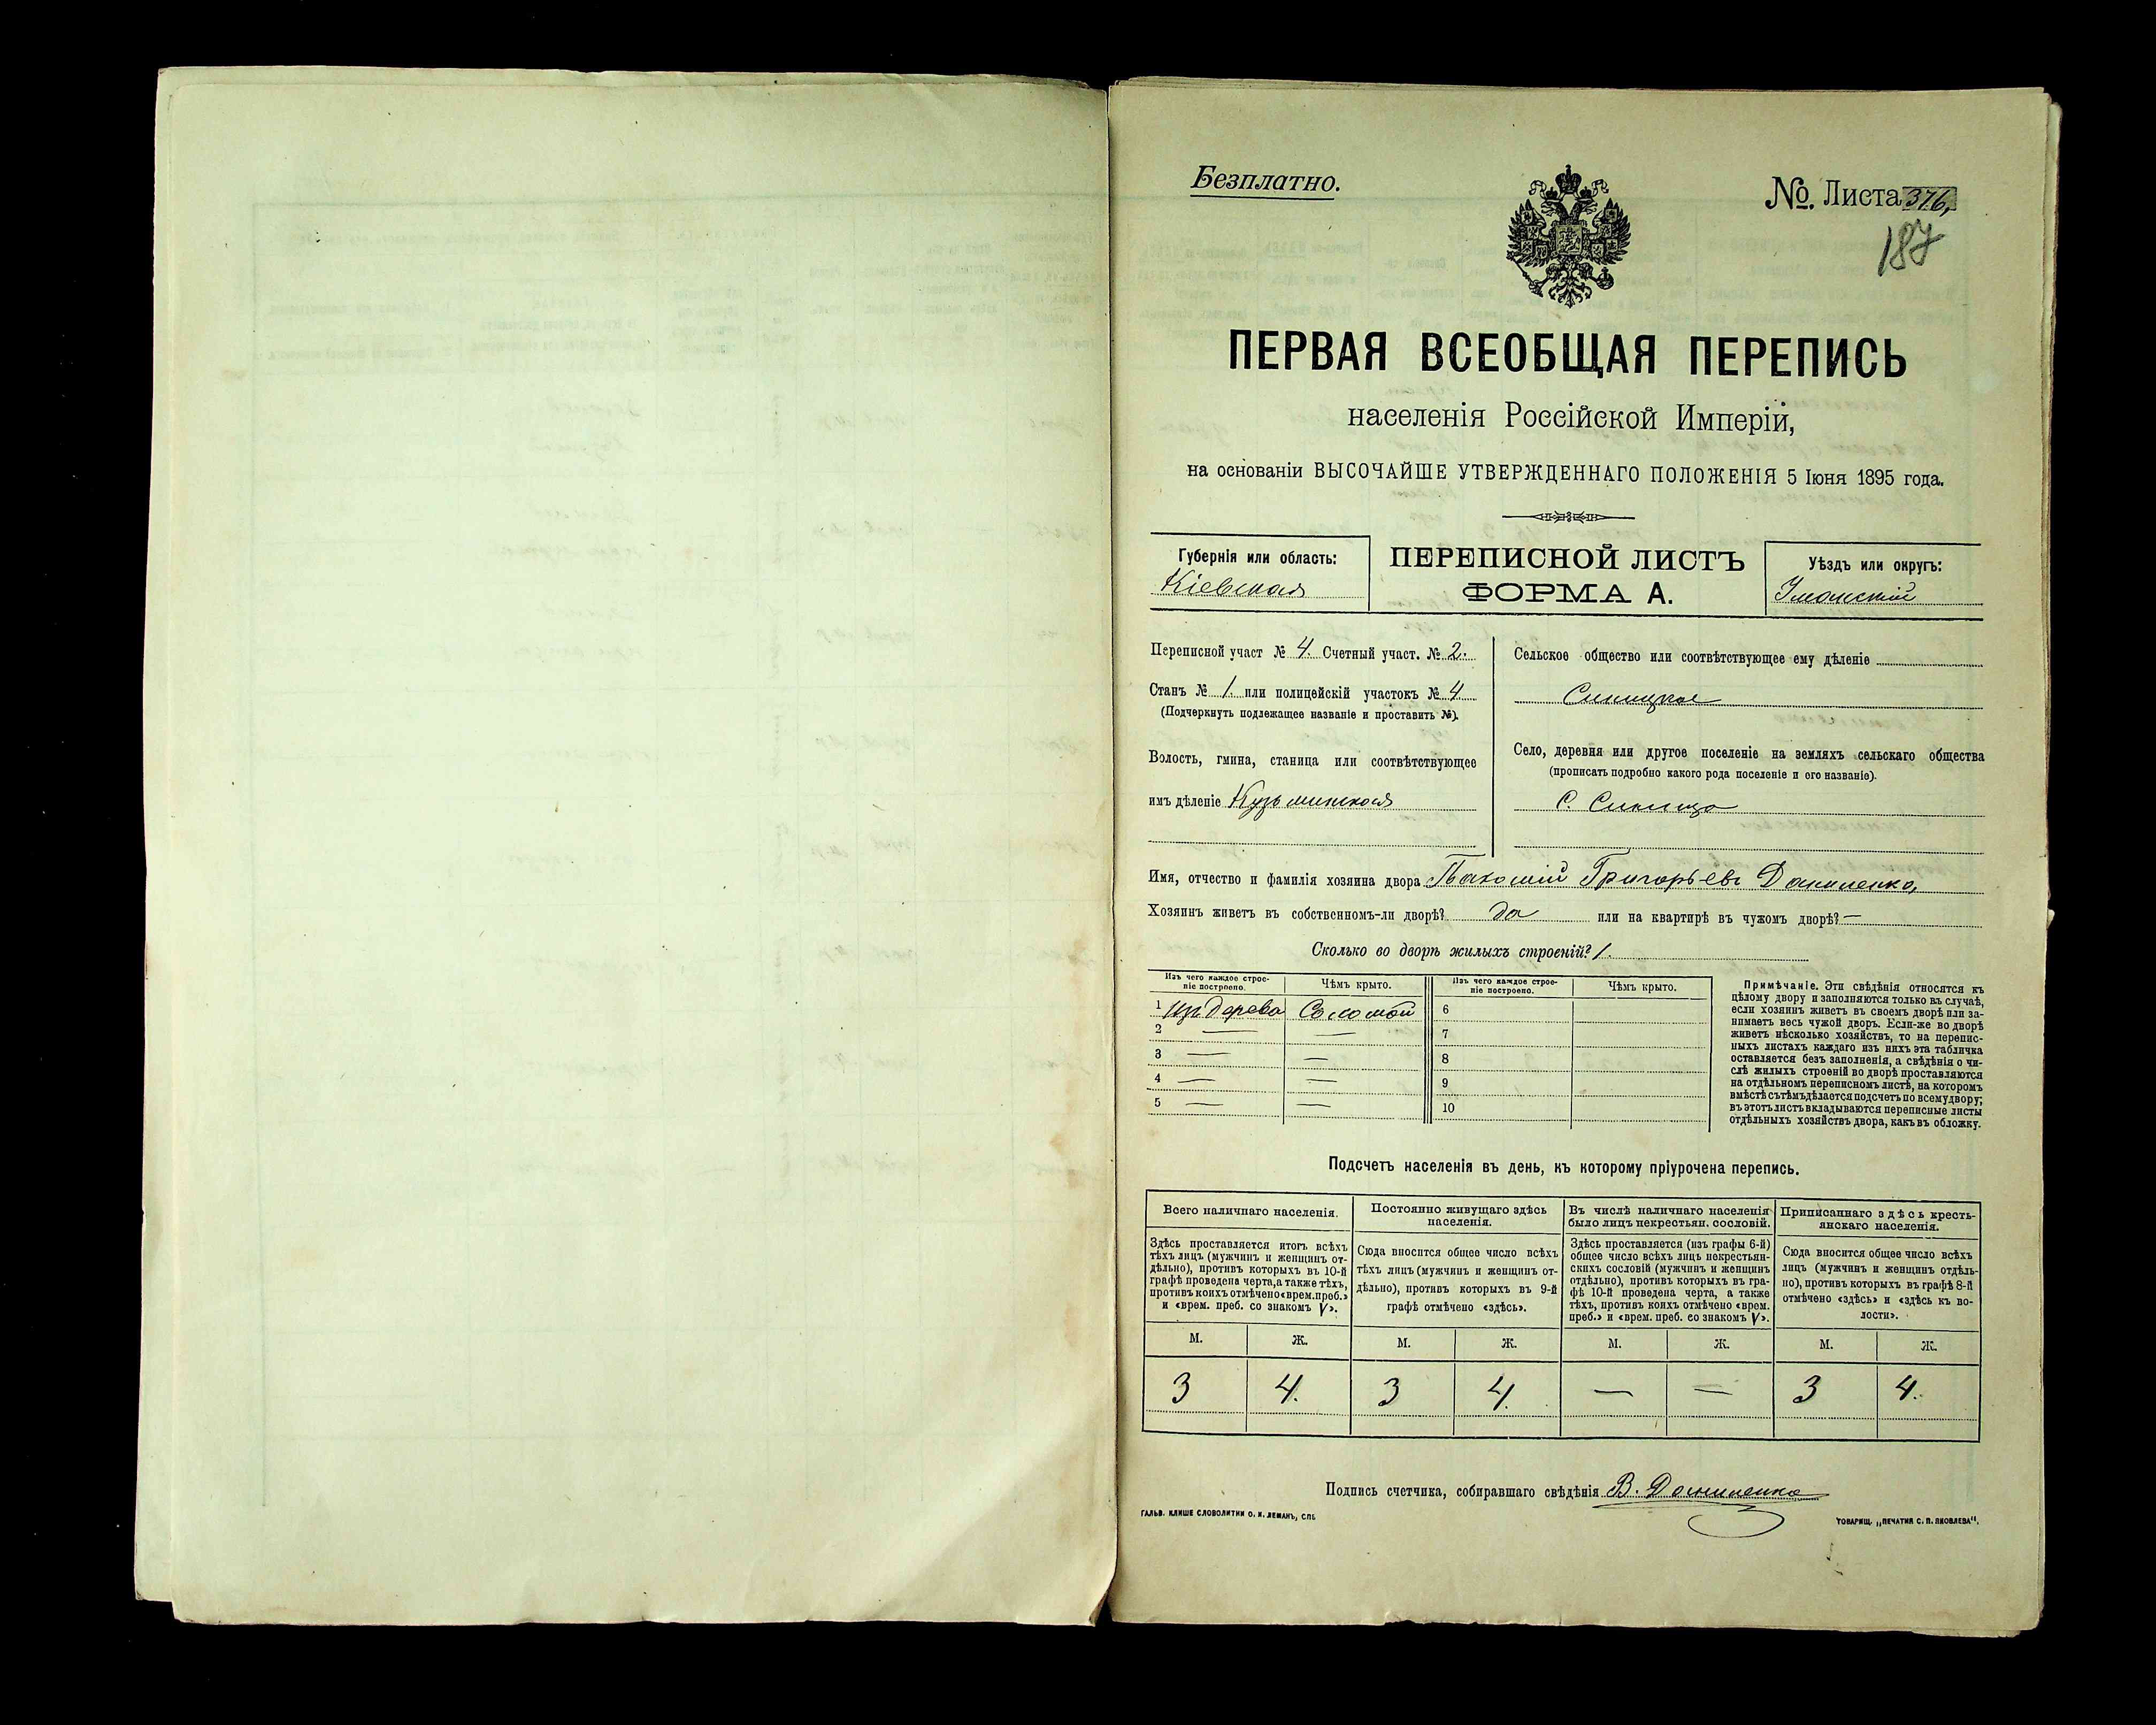 Безплатно.
№. Листа 376,
187
ПЕРВАЯ ВСЕОБЩАЯ ПЕРЕПИСЬ
населенія Россійской Имперіи,
на основаніи ВЫСОЧАЙШЕ УТВЕРЖДЕННАГО ПОЛОЖЕНІЯ 5 Іюня 1895 года.
Губернія или область:
Кіевская
ПЕРЕПИСНОЙ ЛИСТЪ
ФОРМА А.
Уѣздъ или округъ:
Уманскій
Переписной участ № 4. Счетный участ. № 2.
Станъ № 1. или полицейскій участокъ № 4
(Подчеркнуть подлежащее названіе и проставить №).
Волость, гмина, станица или соотвѣтствующее
имъ дѣленіе Кузьминская
Сельское общество или соотвѣтствующее ему дѣленіе
Синицкое
Село, деревня или другое поселеніе на земляхъ сельскаго общества
(прописать подробно какого рода поселеніе и его названіе).
С. Синица
Имя, отчество и фамилія хозяина двора Пахомій Григорьевъ Даниленко,
Хозяинъ живетъ въ собственномъ-ли дворѣ? да или на квартирѣ въ чужомъ дворѣ? —
Сколько во дворѣ жилыхъ строеній? 1.
Изъ чего каждое строе-
ніе построено.
Чѣмъ крыто.
Изъ чего каждое строе-
ніе построено.
Чѣмъ крыто.
1 Изъ дерева Соломой 6
2 — — 7
3 — — 8
4 — — 9
5 — — 10
Примѣчаніе. Эти свѣдѣнія относятся къ
цѣлому двору и заполняются только въ случаѣ,
если хозяинъ живетъ въ своемъ дворѣ или за-
нимаетъ весь чужой дворъ. Если-же во дворѣ
живетъ нѣсколько хозяйствъ, то на перепис-
ныхъ листахъ каждаго изъ нихъ эта табличка
оставляется безъ заполненія, а свѣдѣнія о чи-
слѣ жилыхъ строеній во дворѣ проставляются
на отдѣльномъ переписномъ листѣ, на которомъ
вмѣстѣ съ тѣмъ дѣлается подсчетъ по всему двору;
въ этотъ листъ вкладываются переписные листы
отдѣльныхъ хозяйствъ двора, какъ въ обложку.
Подсчетъ населенія въ день, къ которому пріурочена перепись.
Всего наличнаго населенія.
Здѣсь проставляется итогъ всѣхъ
тѣхъ лицъ (мужчинъ и женщинъ от-
дѣльно), противъ которыхъ въ 10-й
графѣ проведена черта, а также тѣхъ,
противъ коихъ отмѣчено «врем. преб.»
и «врем. преб. со знакомъ V».
Постоянно живущаго здѣсь
населенія.
Сюда вносится общее число всѣхъ
тѣхъ лицъ (мужчинъ и женщинъ от-
дѣльно), противъ которыхъ въ 9-й
графѣ отмѣчено «здѣсь».
Въ числѣ наличнаго населенія
было лицъ некрестьян. сословій.
Здѣсь проставляется (изъ графы 6-й)
общее число всѣхъ лицъ некрестьян-
скихъ сословій (мужчинъ и женщинъ
отдѣльно), противъ которыхъ въ гра-
фѣ 10-й проведена черта, а также
тѣхъ, противъ коихъ отмѣчено «врем.
преб.» и «врем. преб. со знакомъ V».
Приписаннаго здѣсь кресть-
янскаго населенія.
Сюда вносится общее число всѣхъ
лицъ (мужчинъ и женщинъ отдѣль-
но), противъ которыхъ въ графѣ 8-й
отмѣчено «здѣсь» и «здѣсь къ во-
лости».
М. Ж. М. Ж. М. Ж. М. Ж.
3 4. 3 4. — — 3 4.
Подпись счетчика, собиравшаго свѣдѣнія В. Даниленко
ГАЛЬВ. КЛИШЕ СЛОВОЛИТНИ О. И. ЛЕМАНЪ, СПБ.
ТОВАРИЩ. „ПЕЧАТНЯ С. П. ЯКОВЛЕВА".